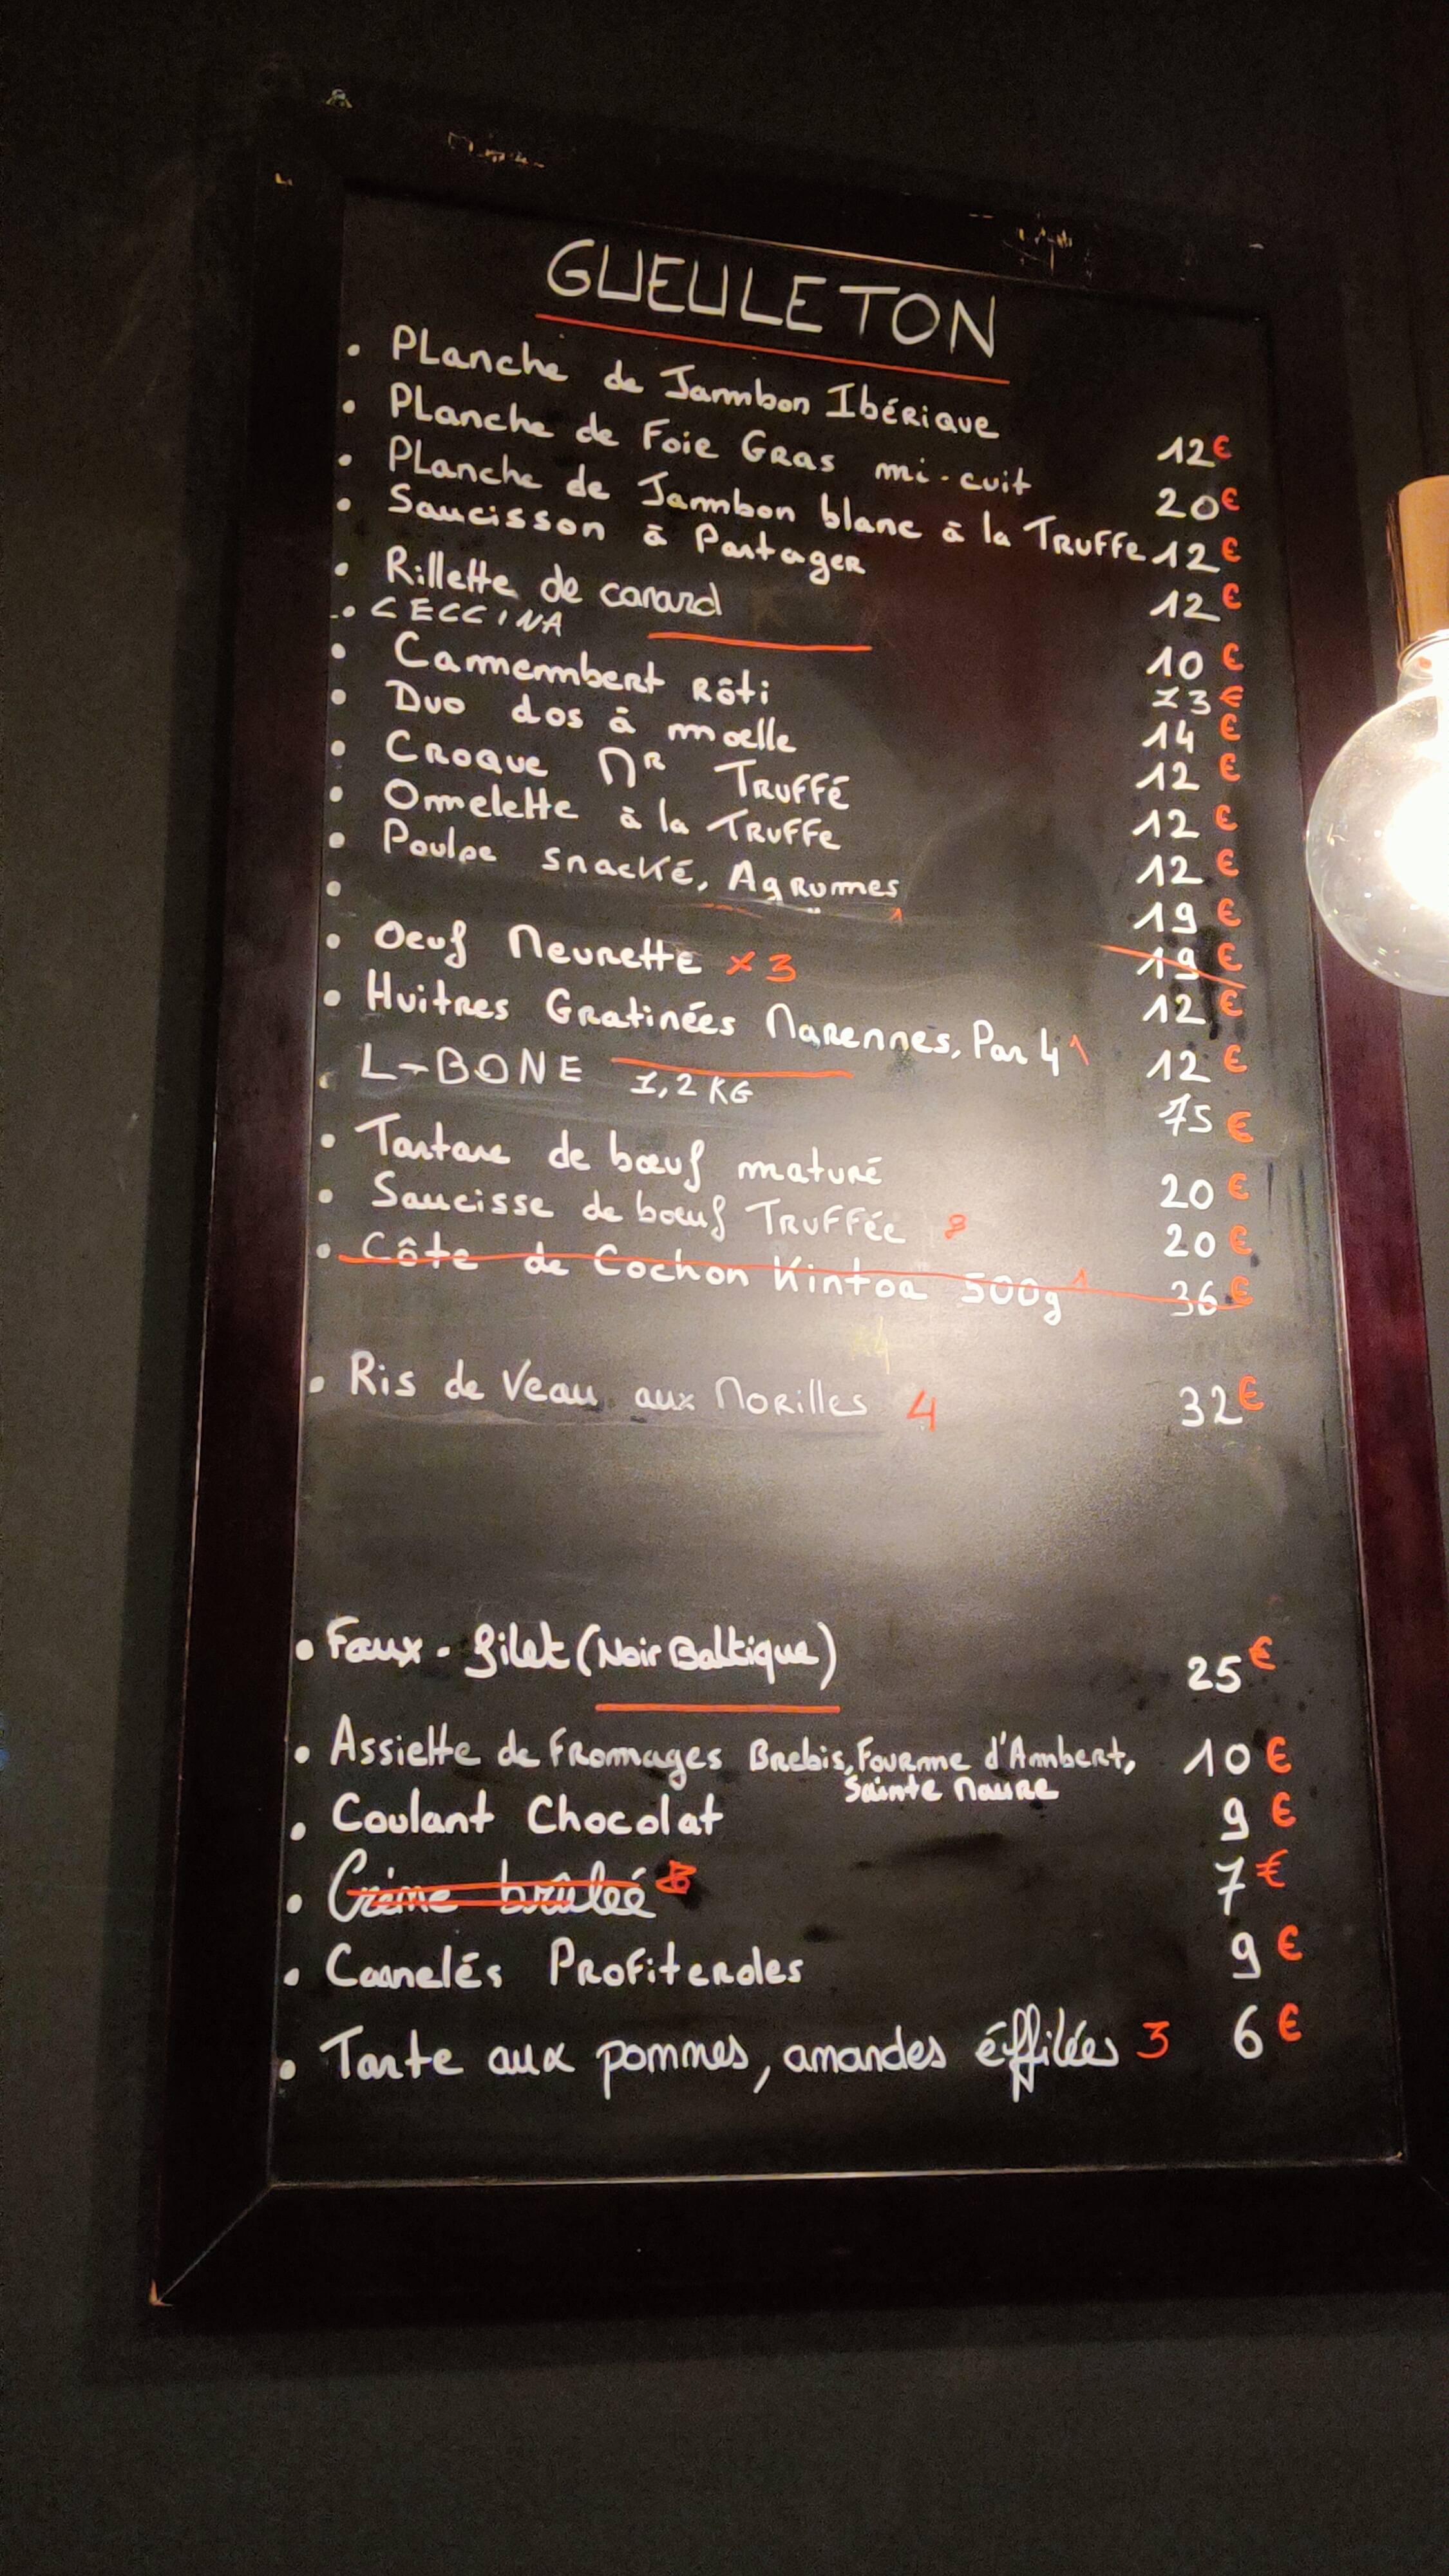 GUEULETON
• PLanche de Jambon IbéRique 12€
• PLanche de Foie GRas mi-cuit 20€
• PLanche de Jambon blanc à la TRuFFe 12€
• Saucisson à PartageR 12€
• Rillette de canard 10€
• CECCINA 13€
• CamembeRt Rôti 14€
• Duo dos à moelle 12€
• CRoque MR TRuFFé 12€
• Ommelette à la TRuFFe 12€
• Poulpe snacké, AgRumes 1 19€
• 19€
• Oeuf Meurette x3 12€
• HuitRes GRatinées MaRennes, Par 4 1 12€
• L-BONE 1,2KG 75€
• Tartare de bœuf matuRé 20€
• Saucisse de bœuf TRuFFée 8 20€
• Côte de Cochon Kintoa 500g 1 36€
• Ris de Veau aux MoRilles 4 32€
• Faux-filet (Noir Baltique) 25€
• Assiette de FRomages Brebis, FouRme d'AmbeRt, 10€
Sainte MauRe
• Coulant Chocolat 9€
• Crème brûleé 7€
• Cannelés PRoFiteRoles 9€
• Tarte aux pommes, amandes éffilées 3 6€